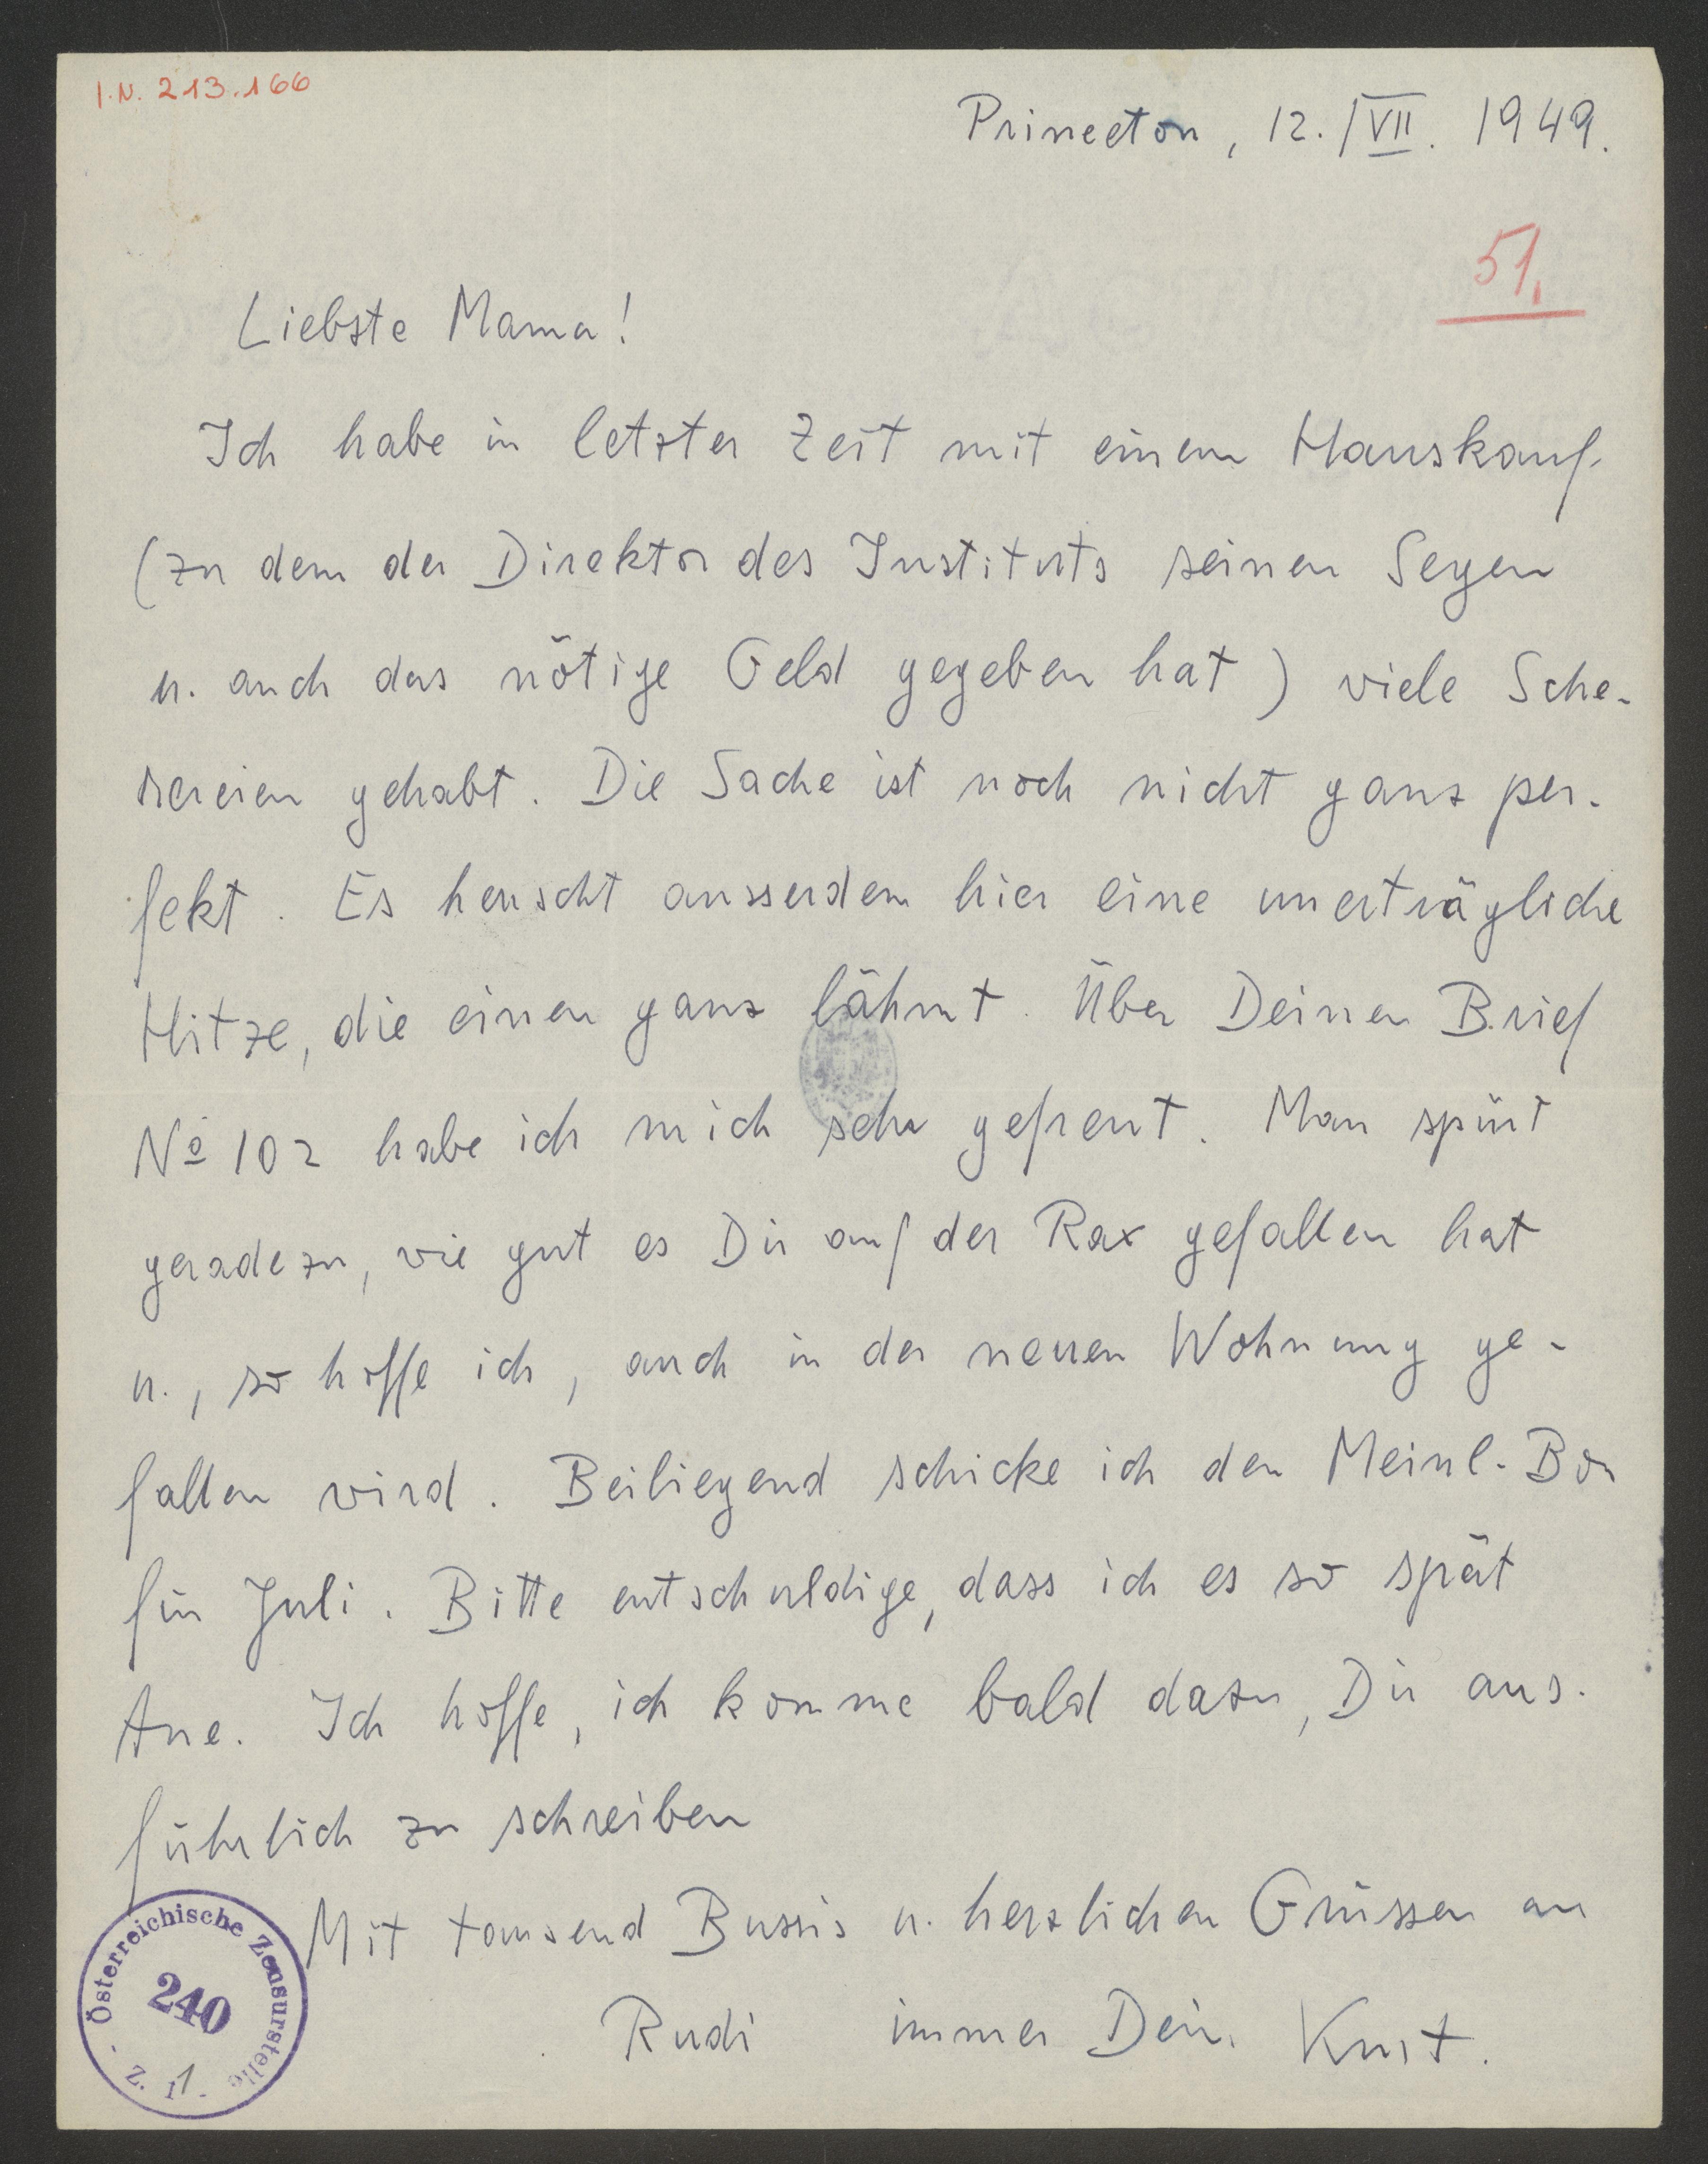 I.N. 213.166
Princeton, 12./VII. 1949.
51.
Liebste Mama!
Ich habe in letzter Zeit mit einem Hauskauf
(zu dem der Direktor des Instituts seinen Segen
u. auch das nötige Geld gegeben hat) viele Sche-
rereien gehabt. Die Sache ist noch nicht ganz per-
fekt. Es herrscht ausserdem hier eine unerträgliche
Hitze, die einen ganz lähmt. Über Deinen Brief
No 102 habe ich mich sehr gefreut. Man spürt
geradezu, wie gut es Dir auf der Rax gefallen hat
u., so hoffe ich, auch in der neuen Wohnung ge-
fallen wird. Beiliegend schicke ich den Meinl-Bon
für Juli. Bitte entschuldige, dass ich es so spät
tue. Ich hoffe, ich komme bald dazu, Dir aus-
führlich zu schreiben
Mit tausend Bussis u. herzlichen Grüssen an
Rudi immer Dein Kurt.
Österreichische Zensurstelle
240